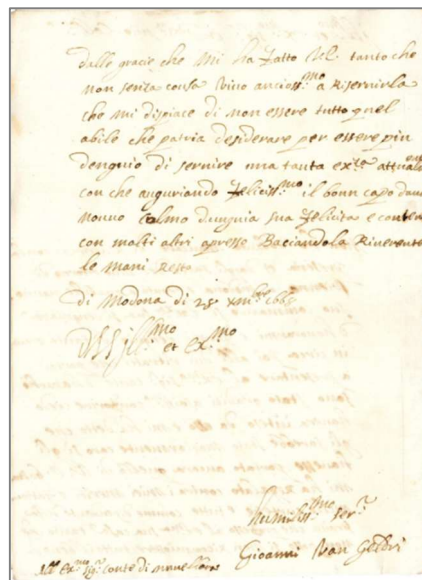 dalle gracie che mi ha fatto VE. tanto che
non senza causa vivo ancioss.mo a Riservirla
che mi dispiace di non essere tutto quel
abile che patria desiderare per essere piu
denguio di servire una tanta ex.te
con che auguriando felicissmo il bonn capo dann
nonuo Colmo dungnia sua felicita e conten
con molti altri apresso Baciandola Riverente
le mani Resto
di Modona di 25 xmbre 166
Ill.mo et Ex.mo
humiliss.mo ser.r
Gioanni Van Geldri
Ex.mo Sig.r Conte di